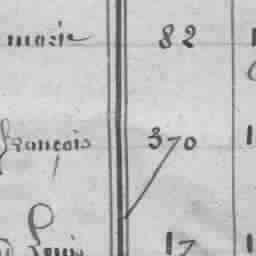 marie 82 1
françois 370 1
Louis 17 1